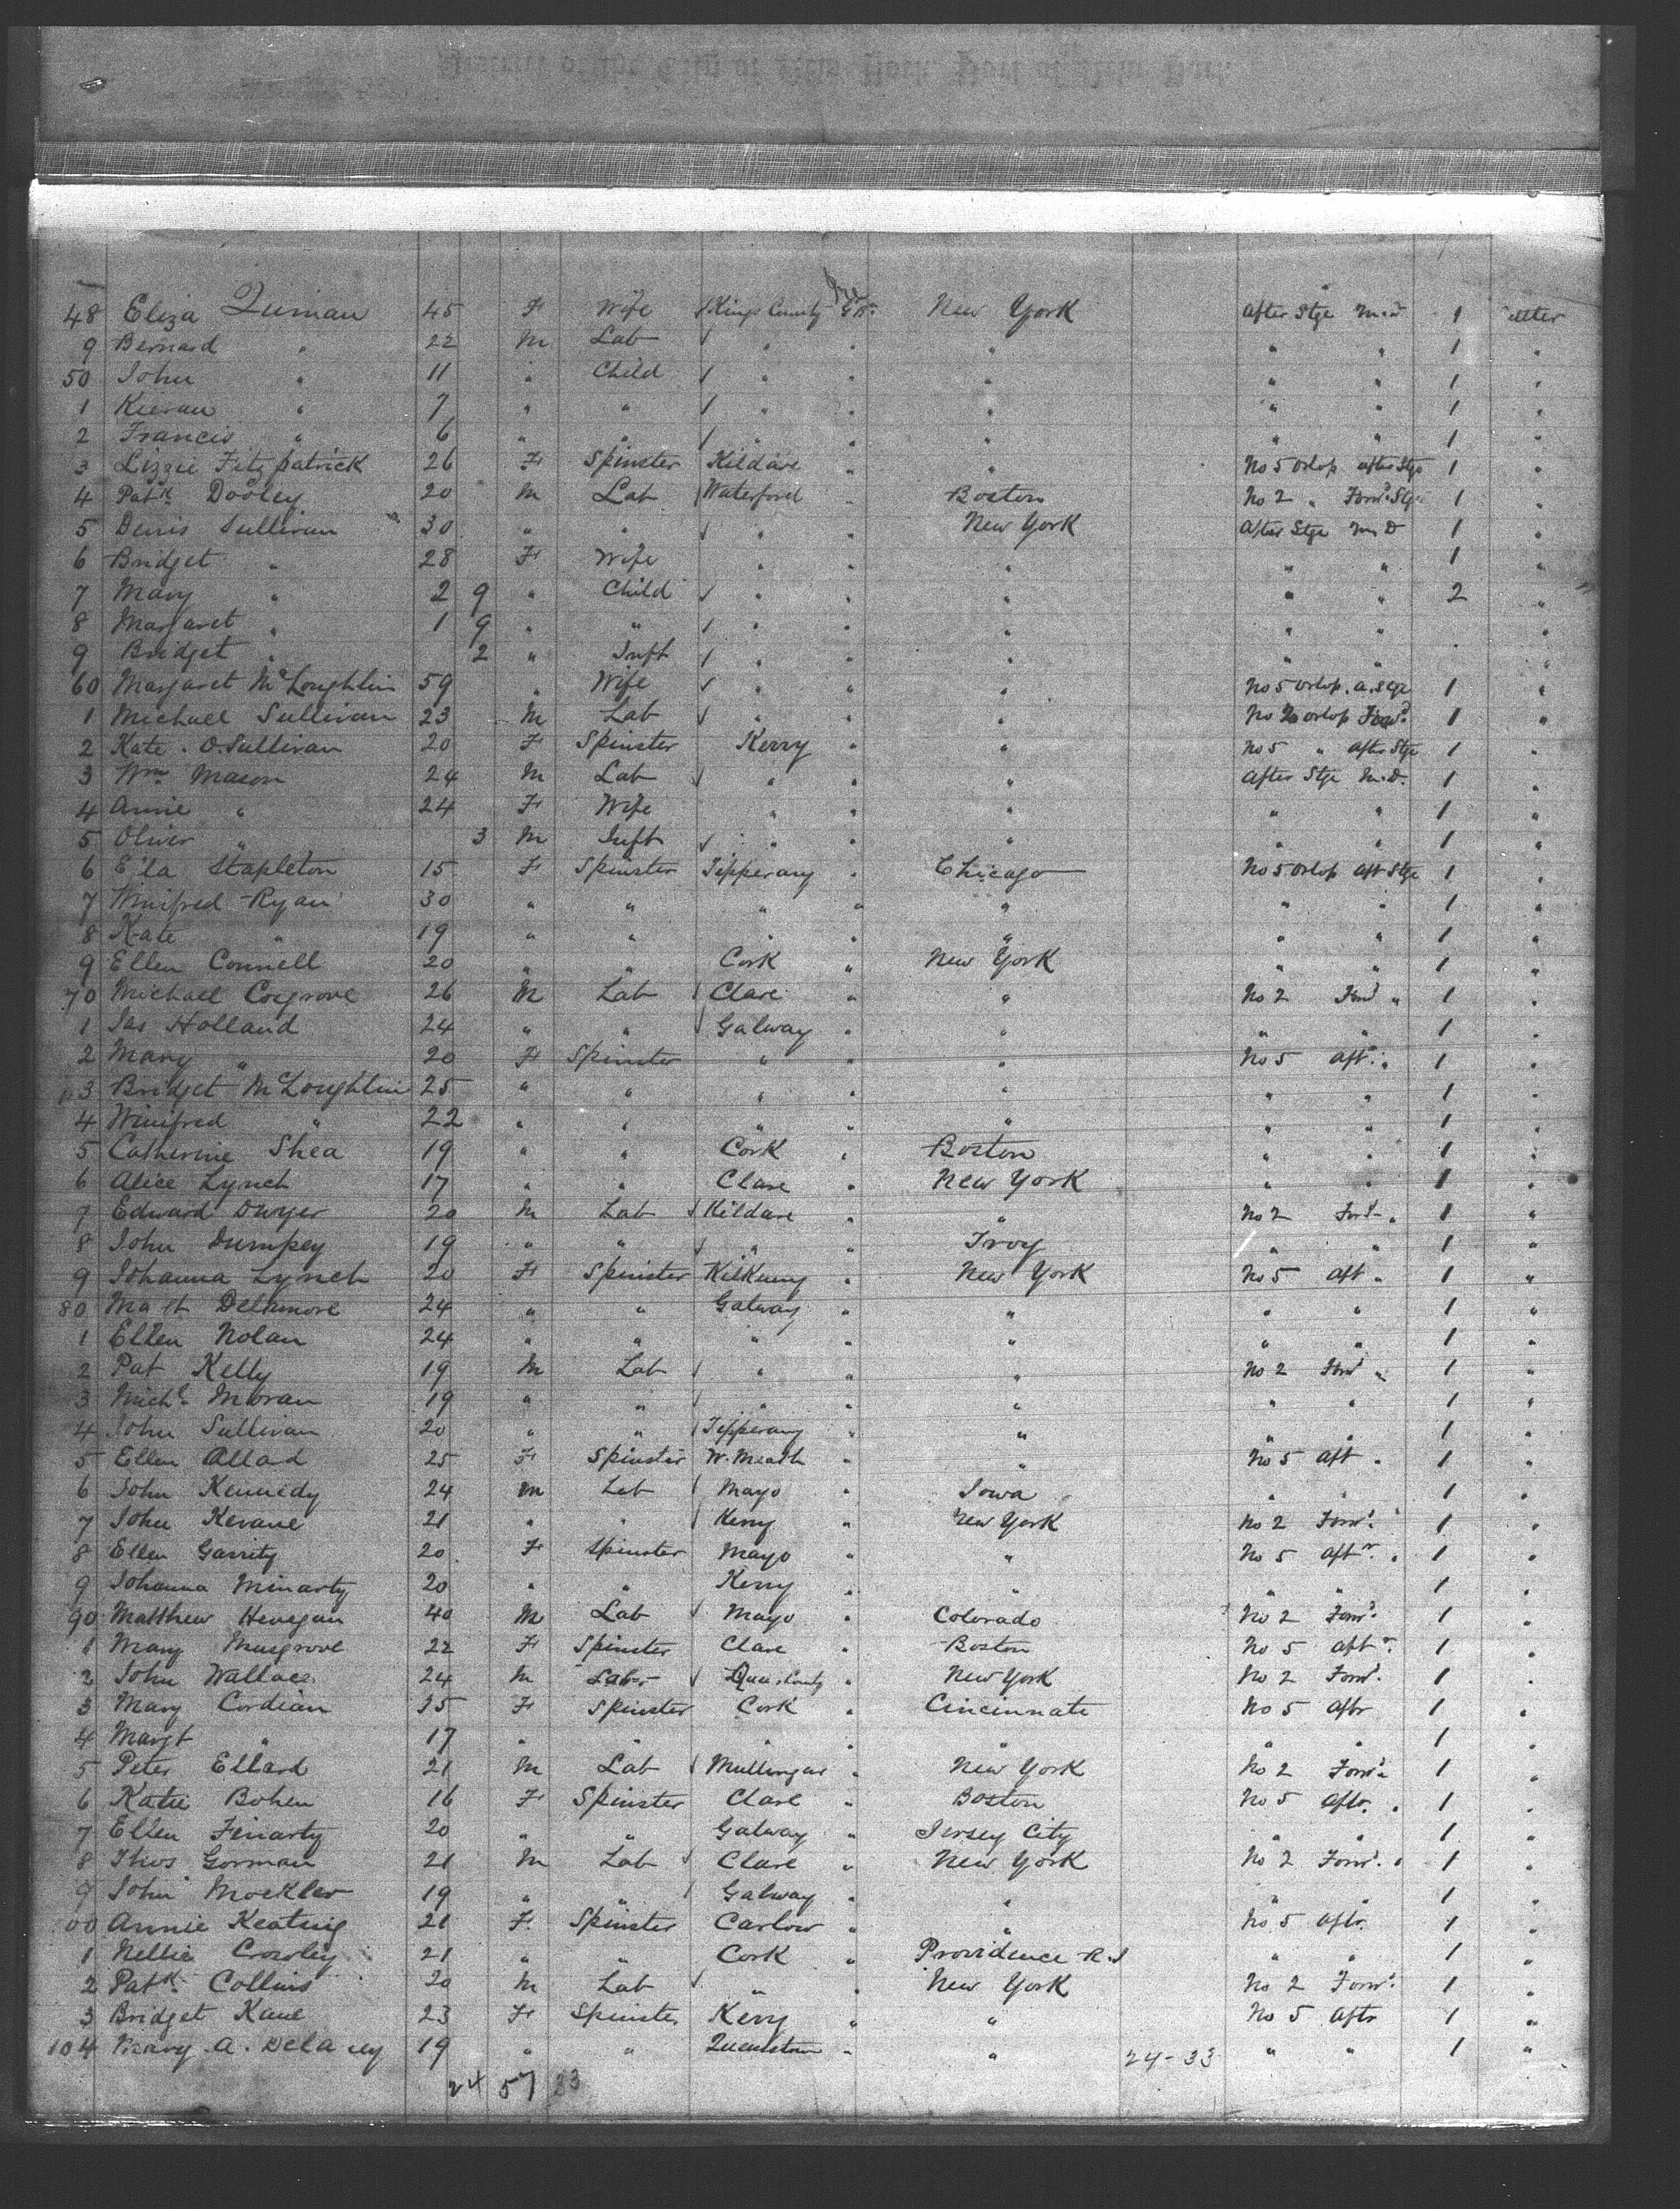 48 Eliza Quinan 45 F Wife Kings County New York After Stge M.D. 1
9 Bernard " 22 M Lab " " " " " 1 "
50 John " 11 " Child " " " " " 1 "
1 Kieran " 7 " " " " " " " 1 "
2 Francis " 6 " " " " " " " 1 "
3 Lizzie Fitzpatrick 26 F Spinster Kildare " " No 5 Orlop after Stge 1 "
4 Patk Dooley 20 M Lab Waterford " Boston No 2 " Forwd Stge 1 "
5 Denis Sullivan 30 " " " " New York After Stge M D 1 "
6 Bridget " 28 F Wife " " " " " 1 "
7 Mary " 2 9 " Child " " " " " 2 "
8 Margaret " 1 9 " " " " " " " "
9 Bridget " 2 " Inft " " " " " " "
60 Margaret McLoughlin 59 " Wife " " " No 5 Orlop. a. Stge 1 "
1 Michael Sullivan 23 M Lab " " " No 2 orlop Forwd 1 "
2 Kate O.Sullivan 20 F Spinster Kerry " " No 5 " after Stge 1 "
3 Wm Mason 24 M Lab " " " After Stge M.D. 1 "
4 Annie " 24 F Wife " " " " " 1 "
5 Oliver " 3 M Inft " " " " " 1 "
6 E'la Stapleton 15 F Spinster Tipperary " Chicago No 5 Orlop aft Stge 1 "
7 Winifred Ryan 30 " " " " " " " 1 "
8 Kate " 19 " " " " " " " 1 "
9 Ellen Connell 20 " " Cork " New York " " 1 "
70 Michael Cosgrove 26 M Lab Clare " " No 2 Forwd " 1 "
1 Jas Holland 24 " " Galway " " " " 1 "
2 Mary " 20 F Spinster " " " No 5 aft. " 1 "
3 Bridget McLoughlin 25 " " " " " " " 1 "
4 Winifred " 22 " " " " " " " 1 "
5 Catherine Shea 19 " " Cork " Boston " " 1 "
6 Alice Lynch 17 " " Clare " New York " " 1 "
7 Edward Dwyer 20 M Lab Kildare " " No 2 Ford " 1 "
8 John Dumpey 19 " " " " Troy " " 1 "
9 Johanna Lynch 20 F Spinster Kilkenny " New York No 5 aft " 1 "
80 Delamore 24 " " Galway " " " " 1 "
1 Ellen Nolan 24 " " " " " " " 1 "
2 Pat Kelly 19 M Lab " " " No 2 Forwd " 1 "
3 Michl Moran 19 " " " " " " " 1 "
4 John Sullivan 20 " " Tipperary " " " " 1 "
5 Ellen Allad 25 F Spinster W. Meath " " No 5 aft " 1 "
6 John Kennedy 24 M Lab Mayo " Iowa " " 1 "
7 John Kerane 21 " " Kerry " New York No 2 Forwd. 1 "
8 Ellen Garrity 20 F Spinster Mayo " " No 5 aftr. " 1 "
9 Johanna Minarty 20 " " Kerry " " " " 1 "
90 Matthew Henegan 40 M Lab Mayo " Colorado No 2 Forwd. 1 "
1 Mary Musgrove 22 F Spinster Clare " Boston No 5 aftr. 1 "
2 John Wallace 24 M Lab Queens County " New York No 2 Forwd. 1 "
3 Mary Cordian 35 F Spinster Cork " Cincinnate No 5 aftr 1 "
4 Margt " 17 " " " " " " " 1 "
5 Peter Ellard 21 M Lab Mullingar " New York No 2 Forwd. 1 "
6 Katie Bohen 16 F Spinster Clare " Boston No 5 aftr. " 1 "
7 Ellen Finarty 20 " " Galway " Jersey City " " 1 "
8 Thos Gorman 21 M Lab Clare " New York No 2 Forwd. " 1 "
9 John Mockler 19 " " Galway " " " " 1 "
00 Annie Keating 21 F. Spinster Carlow " " No 5 aftr. 1 "
1 Nellie Crowley 21 " " Cork " Providence R.I " " 1 "
2 Patk Collins 20 M Lab " New York No 2 Forwd. 1 "
3 Bridget Kane 23 F Spinster Kerry " " No 5 aftr 1 "
104 Mary A. Delaney 19 " " Queenstown " " 24-33 " " 1 "
24 57 33